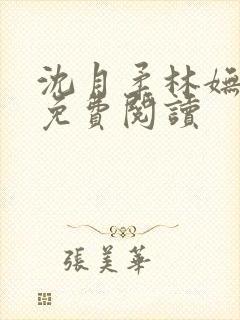 沈自柔林嫵
免費閱讀
張美華